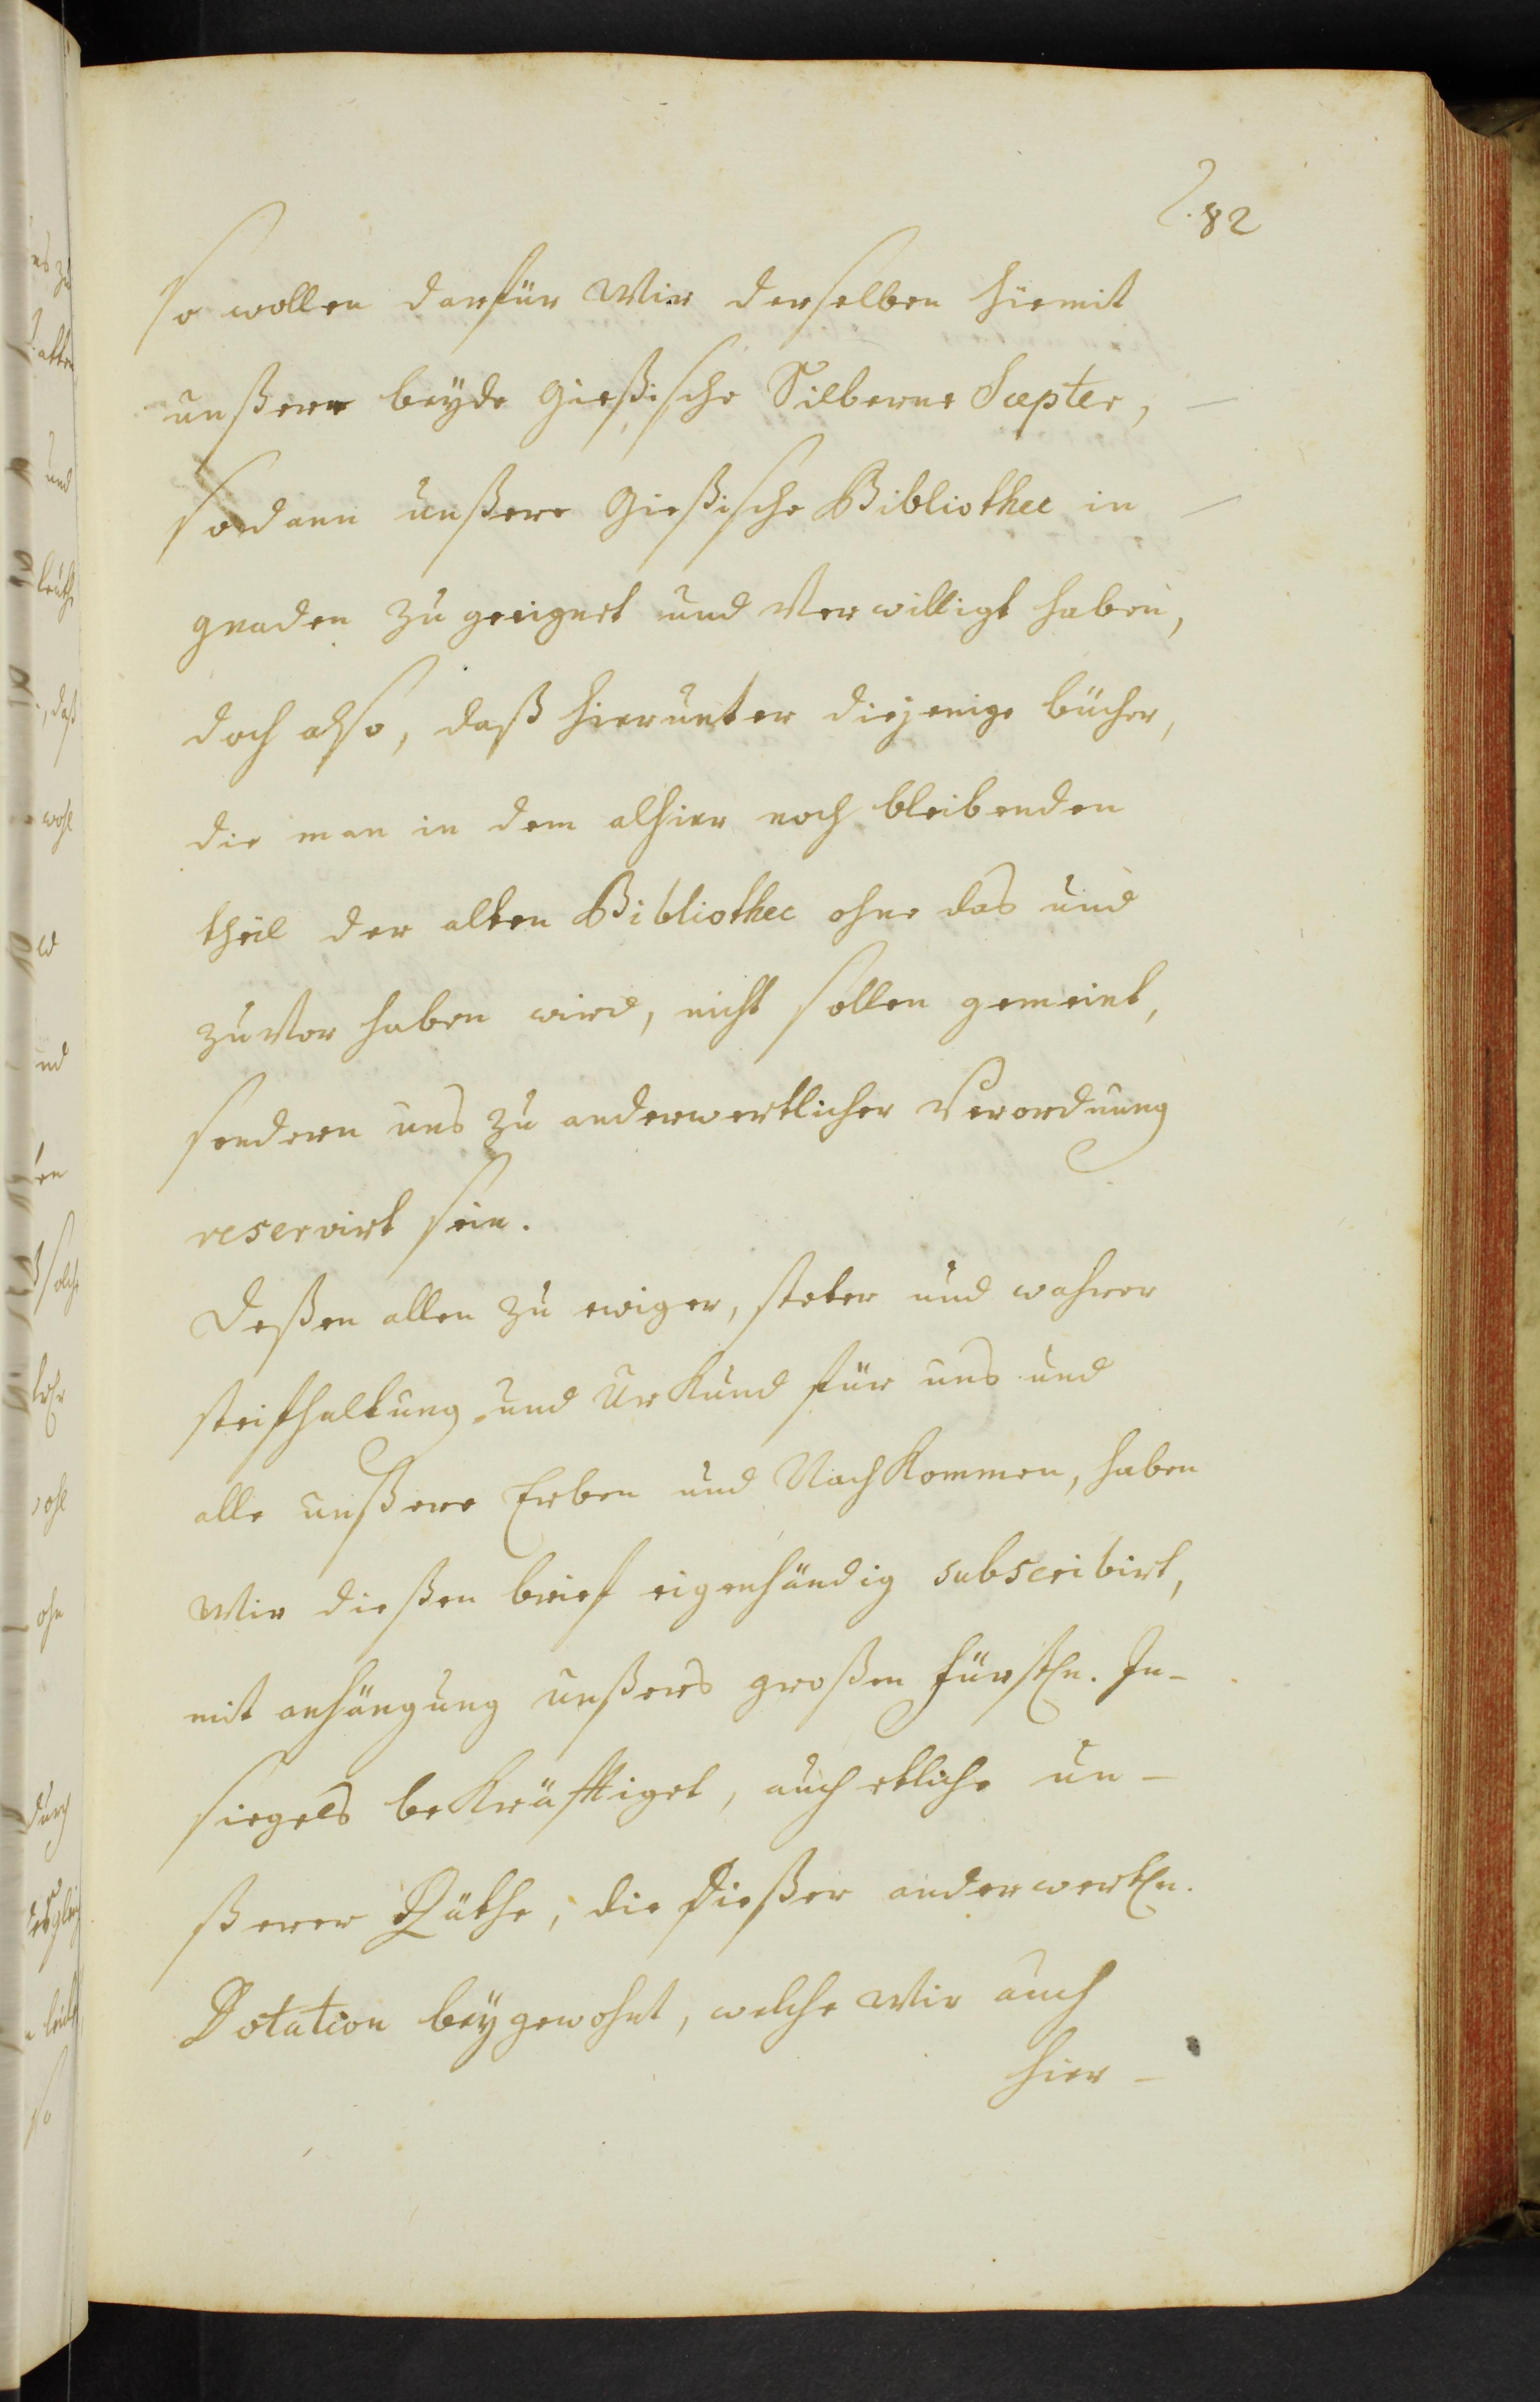 82
so wollen darfür Wir derselben hiemit
unßere beyde Gießische Silberne Scepter,
sodann unßere Gießische Bibliothec in
gnaden zugeeignet und Verwilligt haben,
doch also, daß hierunter diejenige bücher,
die man in dem alhier noch bleibenden
theil der alten Bibliothec ohne das und
zuvor haben wird, nicht sollen gemeint,
sondern uns zu anderwertlicher Verordnung
reservirt sein.
Deßen allen zu ewiger, steter und wahrer
steifhaltung und Urkund für uns und
alle unßere Erben und Nachkommen, haben
Wir dießen brief eigenhändig subscribirt,
mit anhängung unßers großen fürstln. In-
siegels bekräfftiget, auch etliche un-
ßerer Räthe, die dießer anderwertln.
Dotation beygewohnt, welche Wir auch
hier-